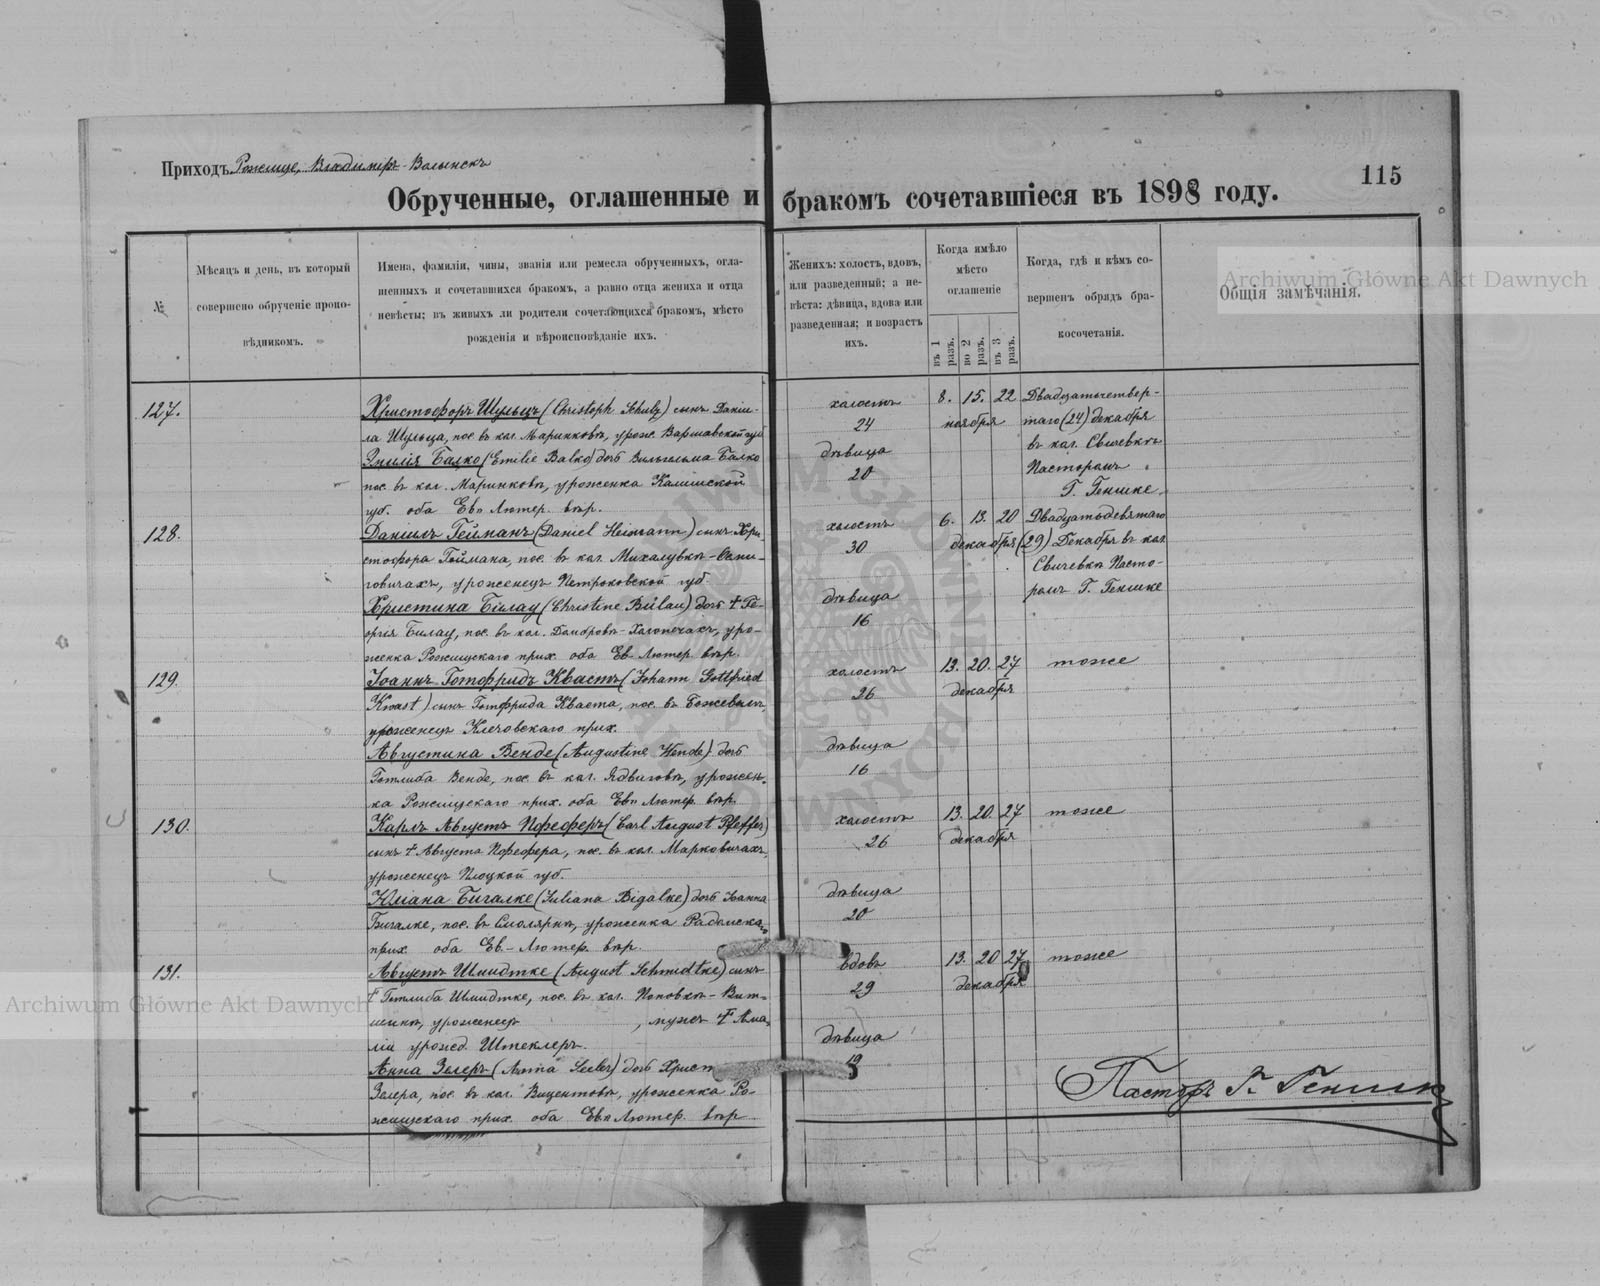 Приходъ Рожище, Владимиръ-Волынскъ
115
Обрученные, оглашенные и бракомъ сочетавшіеся въ 1898 году.
№
Мѣсяцъ и день, въ который
совершено обрученіе пропо-
вѣдникомъ.
Имена, фамиліи, чины, званія или ремесла обрученныхъ, огла-
шенныхъ и сочетавшихся бракомъ, а равно отца жениха и отца
невѣсты; въ живыхъ ли родители сочетающихся бракомъ, мѣсто
рожденія и вѣроисповѣданіе ихъ.
Женихъ: холостъ, вдовъ,
или разведенный; а не-
вѣста: дѣвица, вдова или
разведенная; и возрастъ
ихъ.
Когда имѣло
мѣсто
оглашеніе
въ 1 разъ.
во 2 разъ.
въ 3 разъ.
Когда, гдѣ и кѣмъ со-
вершенъ обрядъ бра-
косочетанія.
Общія замѣчанія.
127.
Христофоръ Шульцъ (Christoph Schulz) сынъ Данiи-
ла Шульца, пос. въ кол. Маринковѣ, урож. Варшавской губ
Эмилія Балко (Emilie Balko) дочь Вильгельма Балко
пос. въ кол. Маринковѣ, уроженка Калишской
губ. оба Ев. Лютер. вѣр.
холостъ
24
дѣвица
20
8. 15. 22
ноября
Двадцатьчетвер-
таго (24) декабря
въ кол. Свичевкѣ
Пасторомъ
Г. Геншке.
128.
Даніилъ Гейманъ (Daniel Heimann) сынъ Хри
стофора Геймана, пос. въ кол. Михалувкѣ-Осми-
говичахъ, уроженецъ Петроковской губ.
Христина Билау (Christine Bülau) дочь † Ге-
оргія Билау, пос. въ кол. Домбровѣ-Холопечахъ, уро-
женка Рожищскаго прих. оба Ев. Лютер. вѣр.
холостъ
30
дѣвица
16
6. 13. 20
декабря
Двадцатьдевятаго
(29) Декабря въ кол.
Свичевкѣ Пасто-
ромъ Г. Геншке
129.
Іоаннъ Готфридъ Квастъ (Johann Gottfried
Kwast) сынъ Готфрида Кваста, пос. въ Божевѣ
уроженецъ Ключовскаго прих.
Августина Венде (Augustine Wende) дочь
Готлиба Венде, пос. въ кол. Ядвиговѣ, урожен-
ка Рожищскаго прих. оба Ев. Лютер. вѣр.
холостъ
26
дѣвица
16
13. 20. 27
декабря
тоже
130.
Карлъ Августъ Пфеферъ (Carl August Pfeffer)
сынъ † Августа Пфефера, пос. въ кол. Марковичахъ,
уроженецъ Плоцкой губ.
Юліана Бигалке (Juliana Bigalke) дочь Іоанна
Бигалке, пос. въ Смолярнѣ, уроженка Радомскаго
прих. оба Ев.-Лютер. вѣр.
холостъ
26
дѣвица
20
13. 20. 27
декабря
тоже
131.
Августъ Шмидтке (August Schmidtke) сынъ
† Готлиба Шмидтке, пос. въ кол. Поповкѣ-
уроженецъ , мужъ † Ама-
ліи урожд. Штеклеръ.
Анна Зелеръ (Anna Seeler) дочь Христ
Зелера, пос. въ кол. Вицентовѣ, уроженка Ро-
жищскаго прих. оба Ев. Лютер. вѣр
вдовъ
29
дѣвица
19
13. 20 27
декабря
тоже
Пасторъ Г. Геншке
Archiwum Główne Akt Dawnych
Archiwum Główne Akt Dawnych